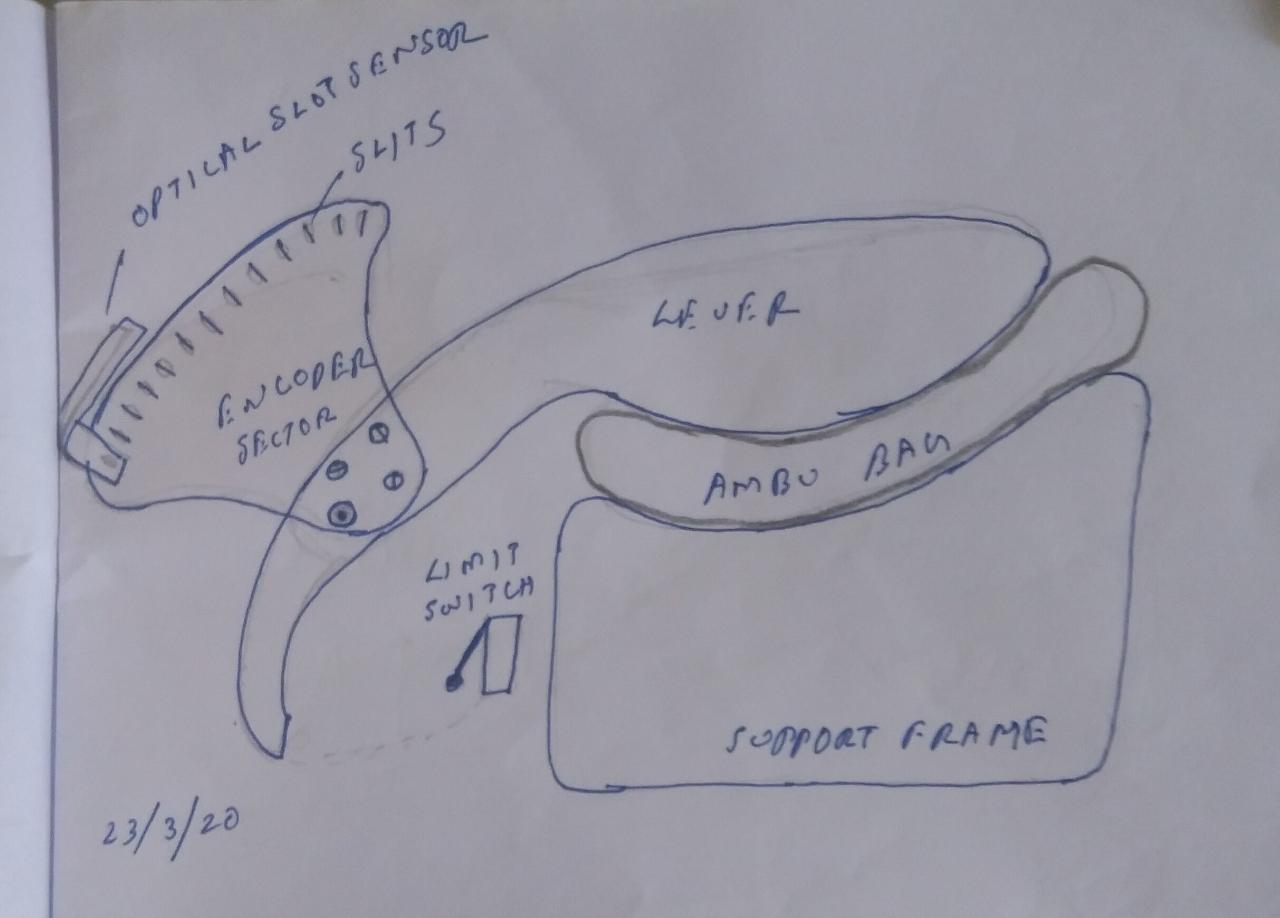 OPTICAL SLOT SENSOR
SLITS
LEVER
ENCODER
SECTOR
AMBU BAG
LIMIT
SWITCH
SUPPORT FRAME
23/3/20